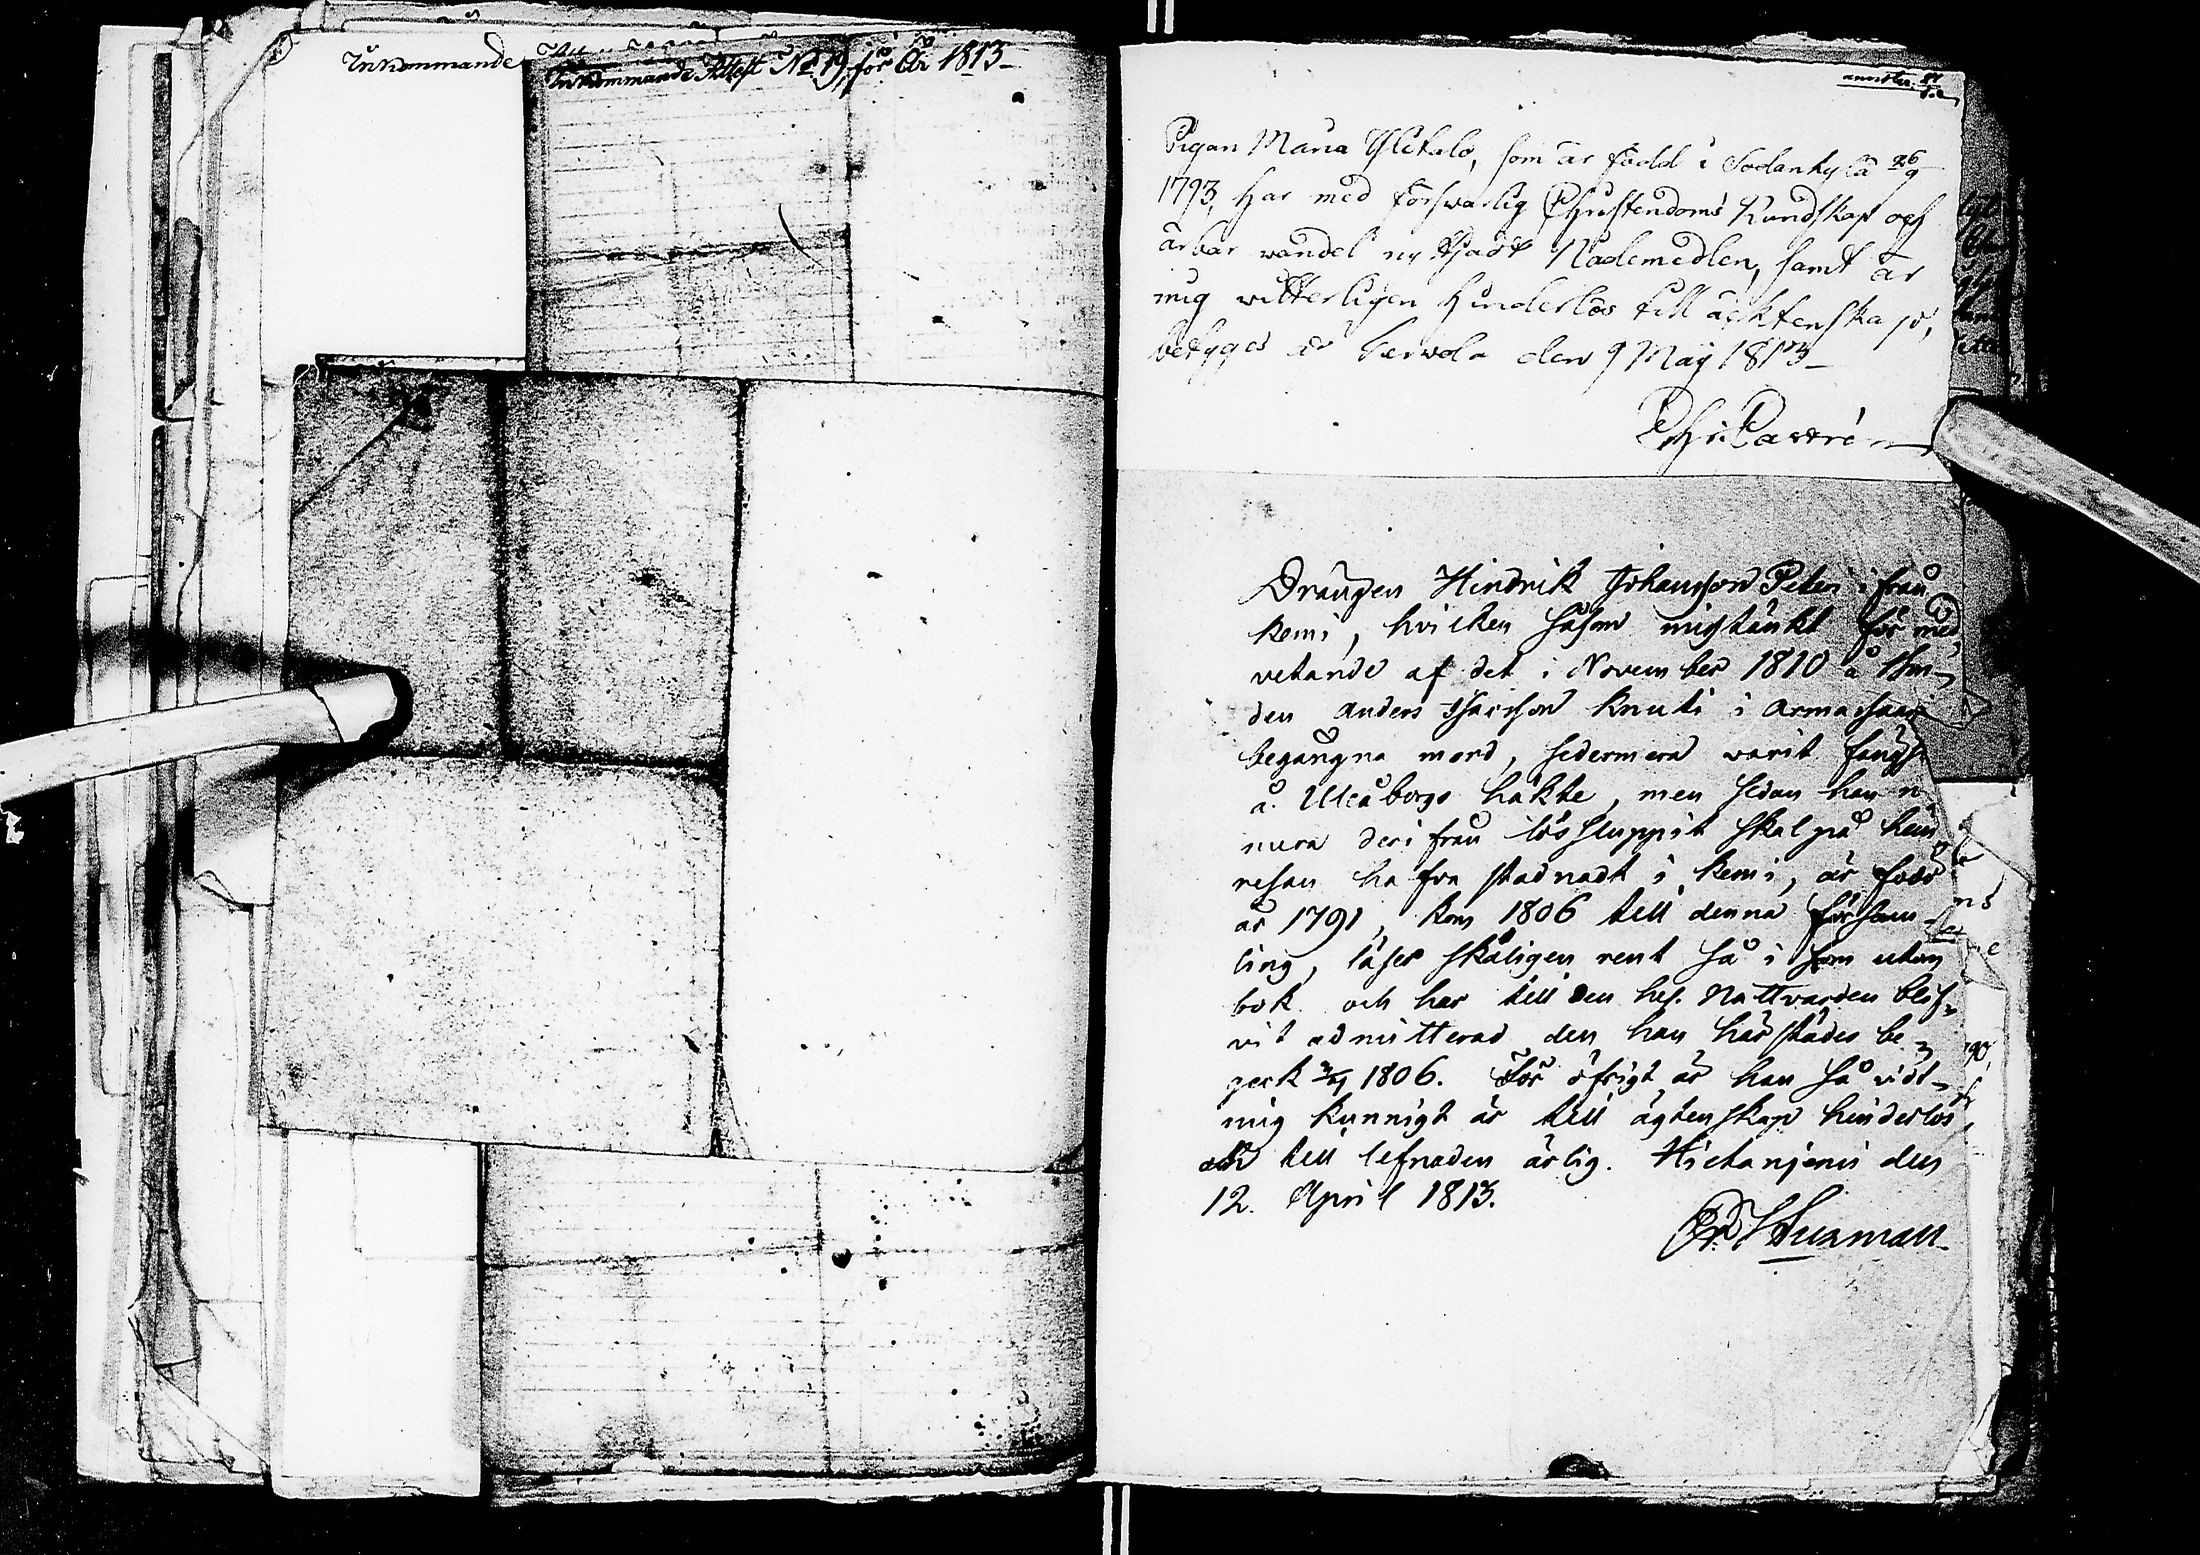 Inkommande
Inkommande Attest No 19 för År 1813
Pigan Maria Ylitalo, som är född i Sodankylä 26/9
1793, har med försvarlig Christendoms Kundskap och
ärbar vandel nyttjadt Nådemedlen, samt är
mig vitterligen hinderlös till äcktenskap,
betygas af Tervola den 9 Maij 1813
Drängen Hindrik Johansson Peteri ifrån
Kemi, hvilken såsom misstänkt för med
vetande af det i November 1810 å Bon-
den Anders Knuti i
begångna mord, sedermera warit fängs.
å Uleåborgs häkte, men sedan han n
mera derifrån lössluppit skal på hem
resan ha fra stadnadt i Kemi, är född
år 1791, kom 1806 till denna försam-
ling, läser skäligen rent så i som utan
bok och har till den hel. Nattvarden blif-
vit admitterad, den han härstädes be-
geck 1806. För öfrigt är han så vidt
mig kunnigt är till ägtenskap hinderlös,
och till lefnaden ärlig. Hietaniemi den
12. April 1813.